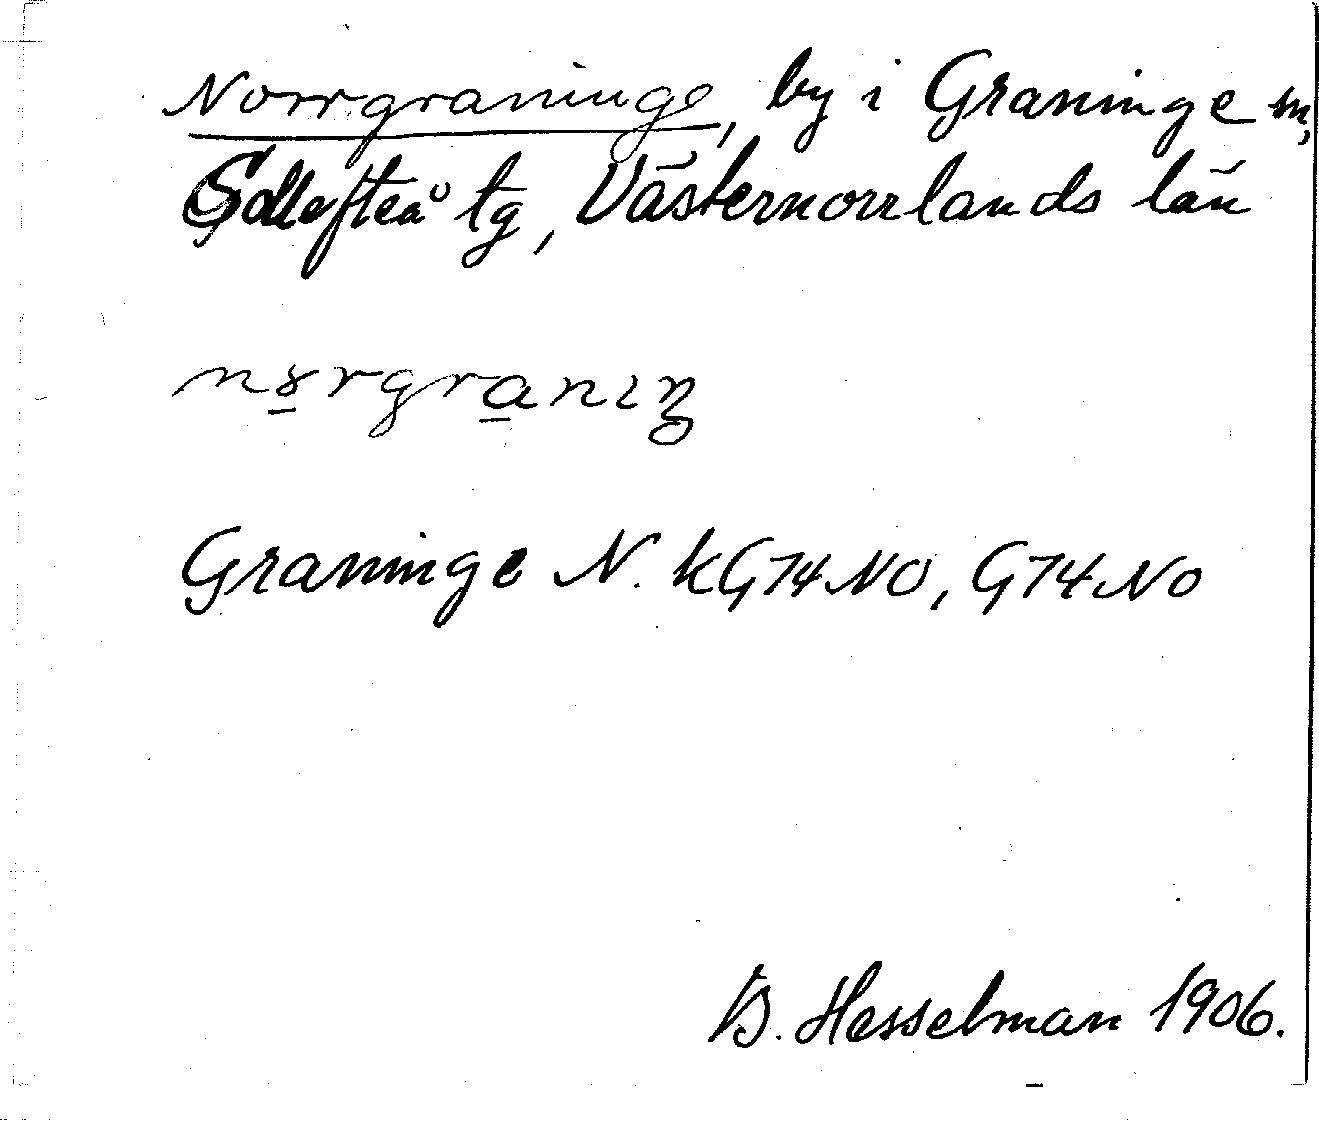 Norrgraninge, by i Graninge sn,
Sollefteå tg, Västernorrlands län
nɤrgranıŋ
Graninge N. kG74NO, G74NO
B. Hesselman 1906.